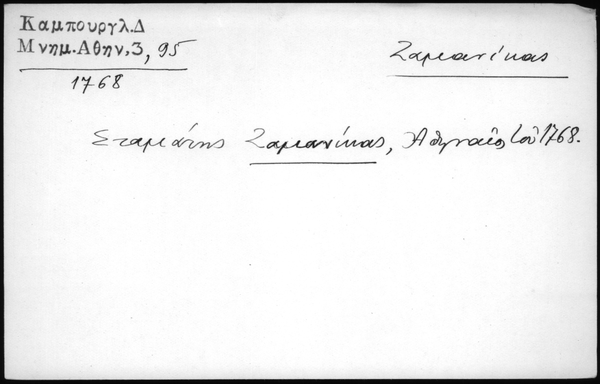 Καμπουργλ.Δ
Μνημ.Αθην,3, 95
1768
Ζαμανίκας
Σταμάτης Ζαμανίκας, Ἀθηναῖος τοῦ 1768.